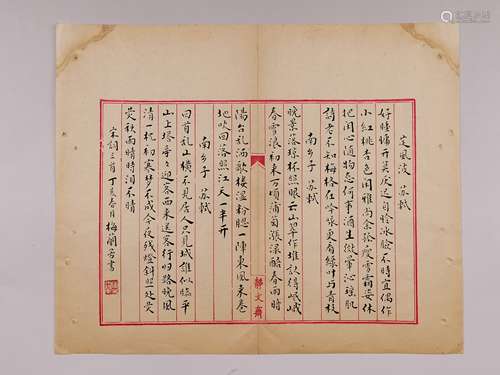 定風波 蘇軾
好睡慵開莫厌遲自怜冰臉不時宜偶作
小紅桃杏色閒雅尚余孤瘦雪霜姿休
把閒心随物态何事酒生微暈沁瑶肌
詩老不知梅格在吟咏更看绿叶与青枝
南乡子 蘇軾
晚景落瓊杯照眼云山翠作堆認得岷峨
春雪浪初來万頃蒲萄漲渌醅春雨暗
陽台乱洒歌樓濕粉腮一陣東風來卷
地吹回落照江天一半开
南乡子 蘇軾
回首乱山横不見居人只見城誰似临平
山上塔亭々迎客西来送客行归路晚風
清一枕初寒梦不成今夜残燈斜照处荧
荧秋雨晴時泪不晴
宋詞三首丁亥春月梅蘭芳書
静文齋